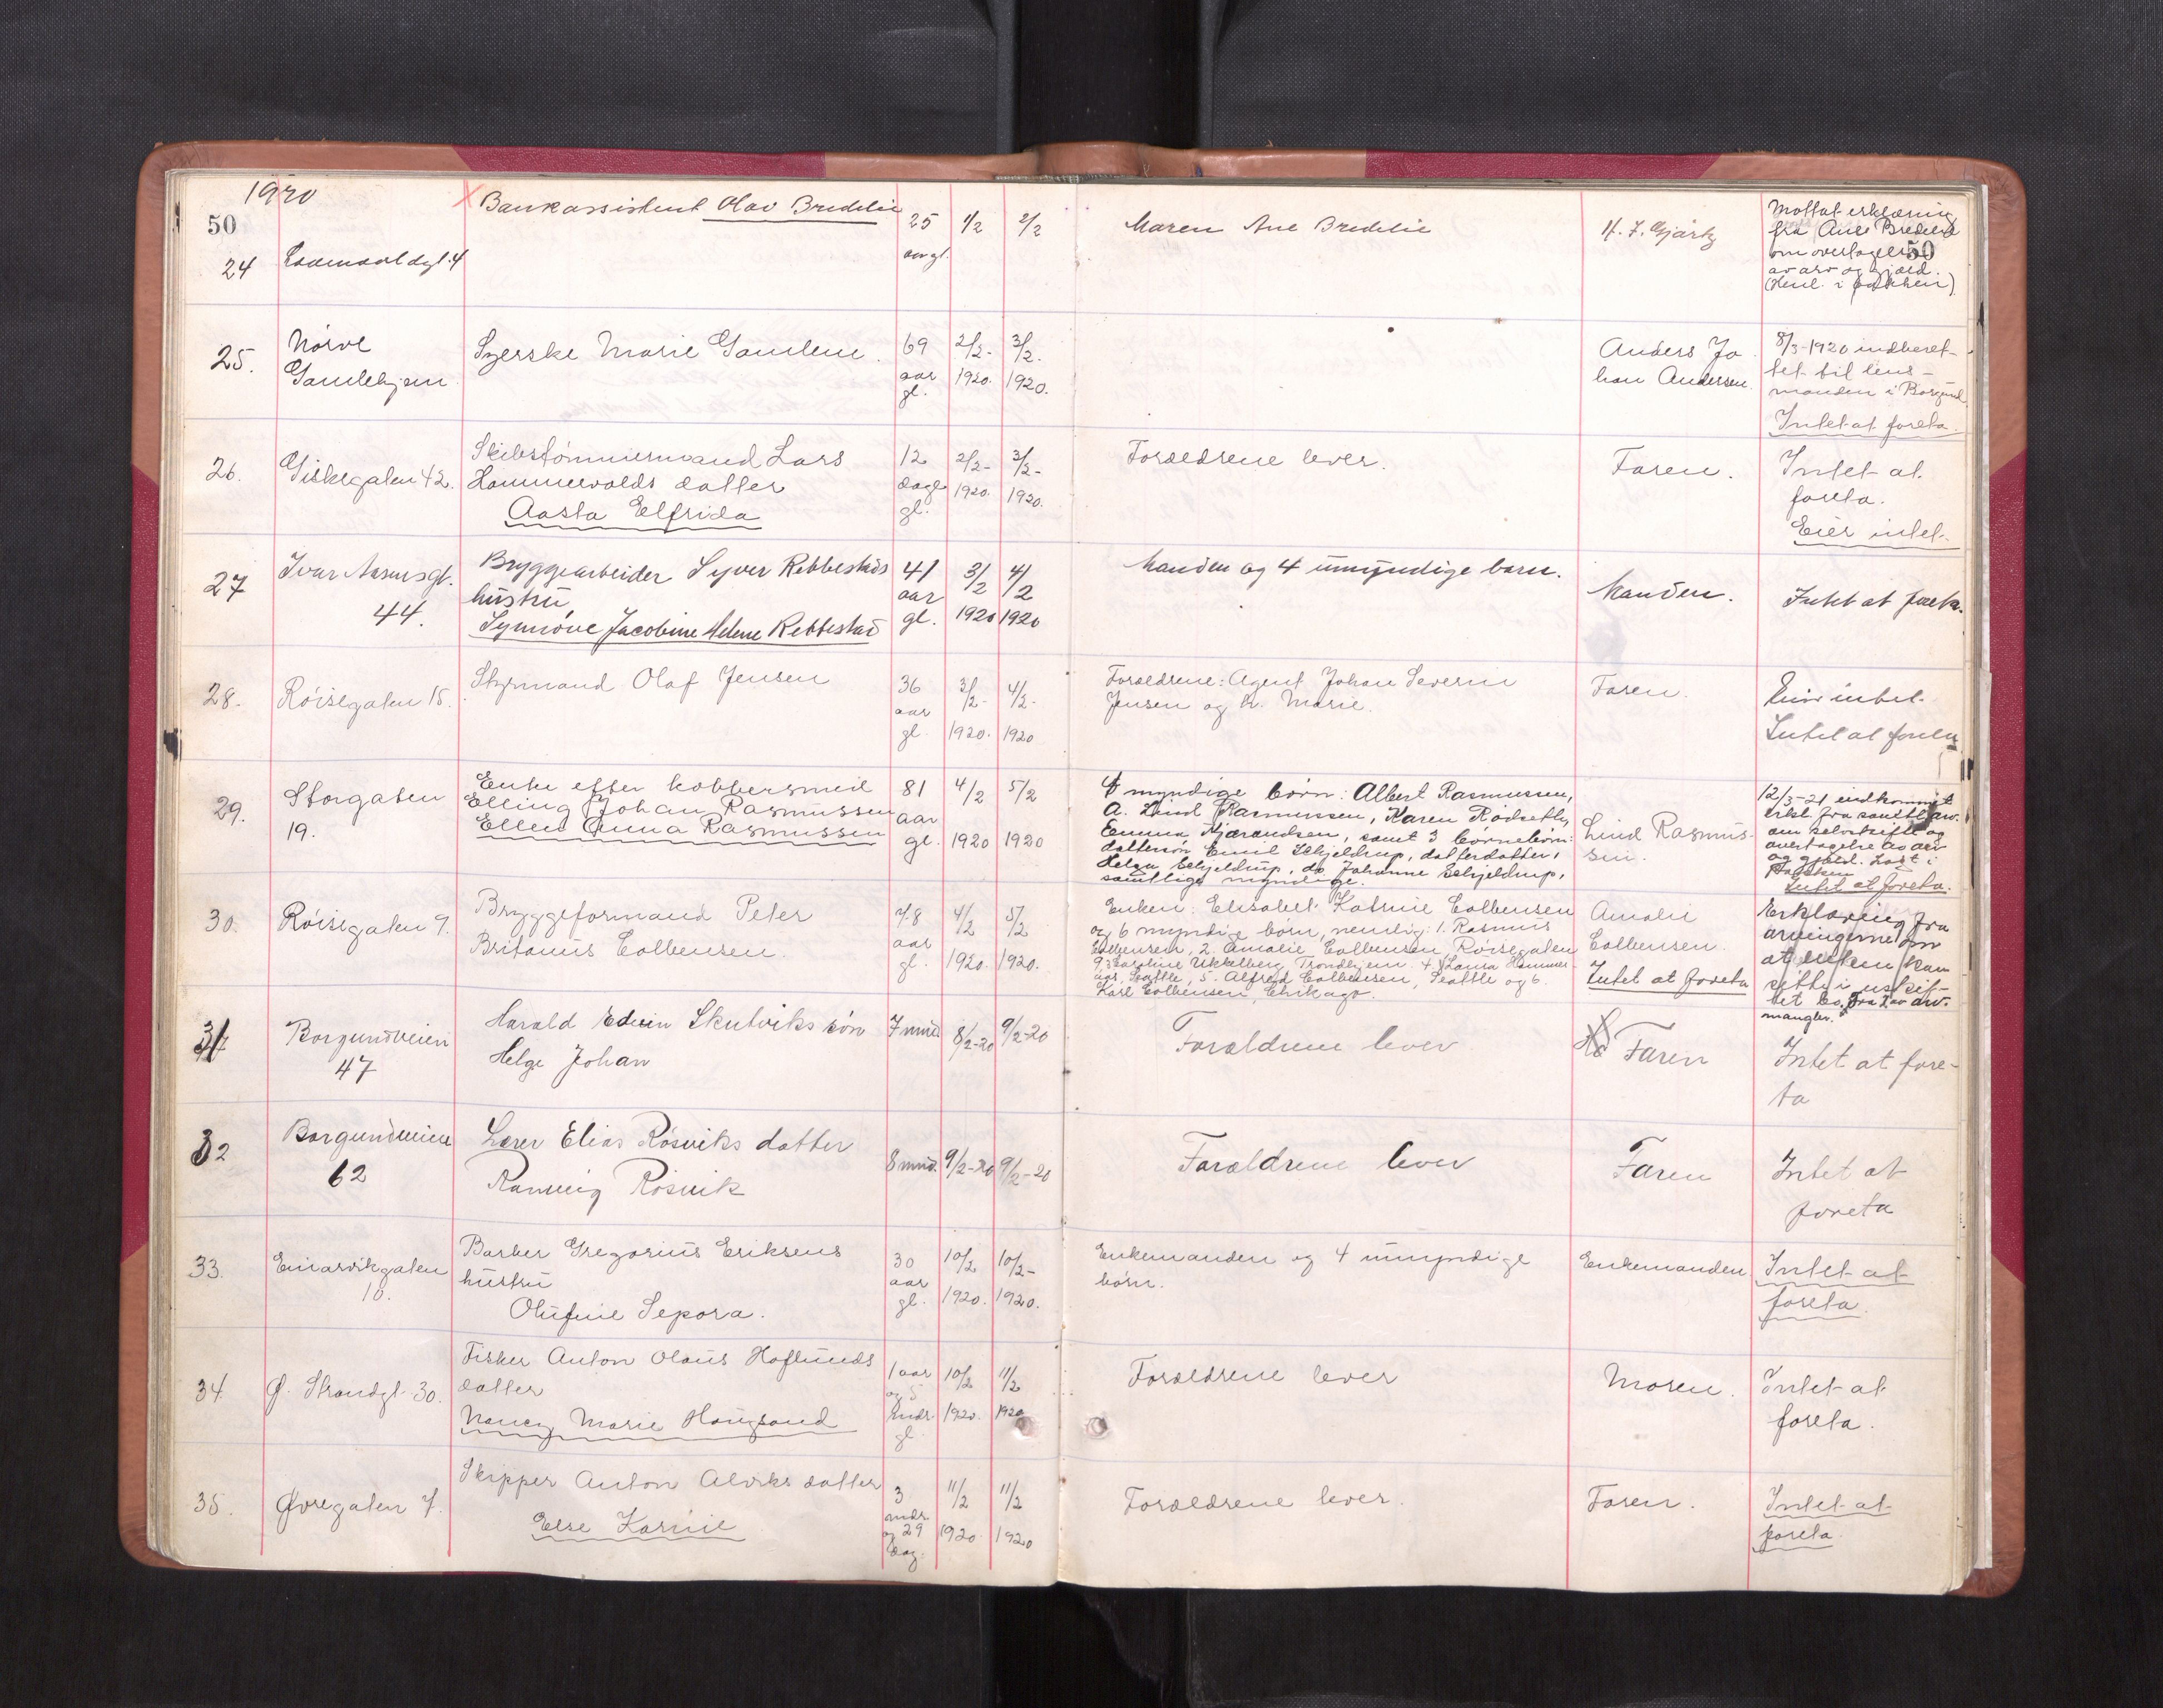 1920
50
24
Bankassistent Olav Bredelie
25
aar gl.
1/2
2/2
Maren Ane Bredelie
Mottat erklæring
fra Ane Bredelie
om overtagelse
50
av arv og gjæld.
25.
Nørve
Gamlehjem
Syerske Marie Gamlem.
69
aar
gl.
2/2-
1920.
3/2-
1920.
Anders Jo
han Andersen.
8/3-1920 indberet-
tet til lens-
manden i Borgund
Intet at foreta.
26.
Giskegaten 42.
Skibstømmermand Lars
Hammervolds datter
Aasta Elfrida
12
dage
gl.
2/2-
1920.
3/2-
1920.
Forældrene lever.
Faren.
Intet at
foreta.
Eier intet.
27
Ivar Aasensgt.
44.
Bryggearbeider Syver Rebbestads
hustru
Synnöve Jacobine Helene Rebbestad
41
aar
gl.
3/2
1920
4/2
1920
Manden og 4 umyndige barn.
Manden.
Intet at foreta.
28.
Röisegaten 15.
Styrmand Olaf Jensen
36
aar
gl.
3/2-
1920.
4/2-
1920
Forældrene: Agent Johan Severin
Jensen og h. Marie.
Faren.
Eier intet.
Intet at foreta
29.
Storgaten
19.
Enke efter kobbersmed
Elling Johan Rasmussen
Ellen Anna Rasmussen
81
aar
gl.
4/2
1920
5/2
1920
4 myndige börn: Albert Rasmussen,
A. Lind Rasmussen, Karen Rödseth,
Emma Hjærandsen, samt 3 börnebörn:
dattersön Emil Schjeldrup, datterdatter,
Helga Schjeldrup, do Johanne Schjeldrup,
samtlige myndige.
Lind Rasmus-
sen.
12/3-21 indkommet
erkl. fra samtl. arv.
om selvskifte og
overtagelse av arv
og gjæld.
Intet at foreta.
30.
Röisegaten 9.
Bryggeformand Peter
Britanus Colbensen
78
aar
gl.
4/2
1920.
5/2
1920.
Enken: Elisabet Katrine Colbensen
og 6 myndige börn, nemlig: 1. Rasmus
Colbensen, 2. Amalie Colbensen, Röisegaten
9, 3. Karoline Ukkelberg Trondhjem. 4. Laura Hammer-
aas, Seattle, 5. Alfred Colbensen, Seattle og 6.
Karl Colbensen, Chikago.
Amalie
Colbensen.
Intet at foreta
Erklæring fra
arvingerne om
at enken kan
sitte i uskif-
tet bo. Fra 2 av arv.
mangler.
31
Borgundveien
47
Harald Edvin Skutviks sön
Helge Johan
7 mnd
8/2-20
9/2-20
Forældrene lever
Faren
Intet at fore-
ta
32
Borgundveien
62
Lærer Elias Rösviks datter
Ranveig Rösvik
8 mnd.
9/2-20
9/2-20
Forældrene lever
Faren
Intet at
foreta
33.
Einarvikgaten
10.
Barber Gregorius Eriksens
hustru
Olufine Sepora.
30
aar
gl.
10/2
1920.
10/2-
1920.
Enkemanden og 4 umyndige
börn.
Enkemanden
Intet at
foreta.
34
Ø. Strandgt. 30.
Fisker Anton Olaus Hoflunds
datter
Nancy Marie Haugsand
1 aar
og 5
mdr.
gl
10/2
1920.
11/2
1920
Forældrene lever
Moren.
Intet at
foreta.
35.
Øvregaten 7.
Skipper Anton Alviks datter
Else Karine
3
mdr.
og 29
dag.
11/2
1920
11/2
1920
Forældrene lever.
Faren.
Intet at
foreta.